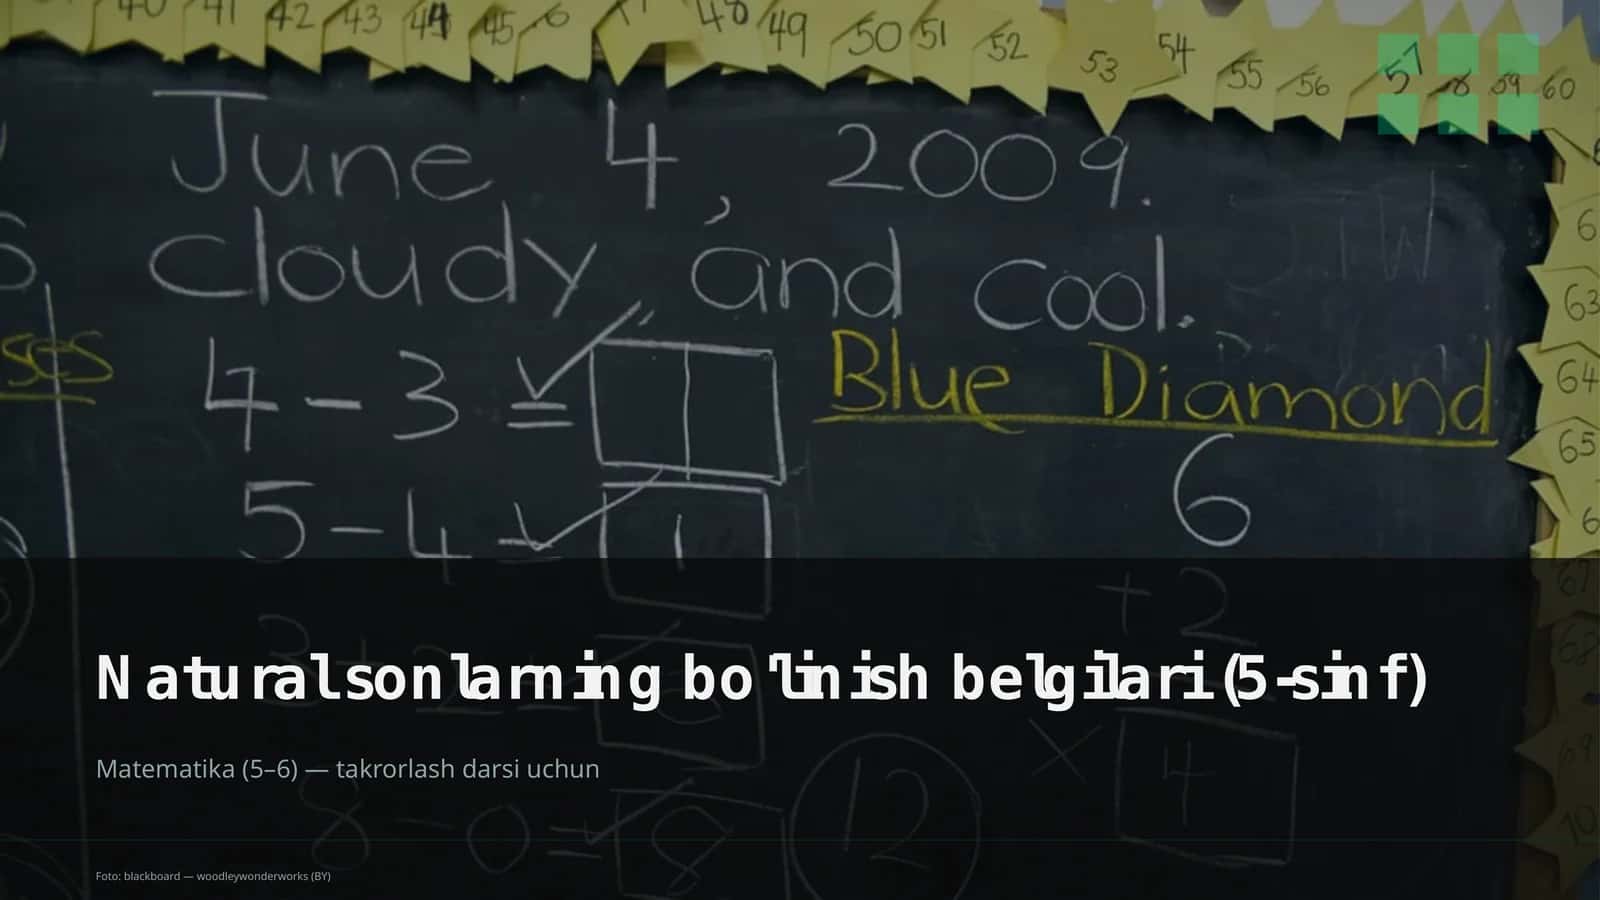 40 41 42 43 44 45 48 49 50 51 52 53 54 55 56 57 58 59 60
June 4, 2009.
Cloudy and cool.
4 - 3 =
Blue Diamond
5 - 4 1
6
+ 2
63
64
65
Naturalsonlarning bo'linish belgilari (5-sinf)
4
Matematika (5–6) — takrorlash darsi uchun
8 - 0 = 8
12
Foto: blackboard — woodleywonderworks (BY)